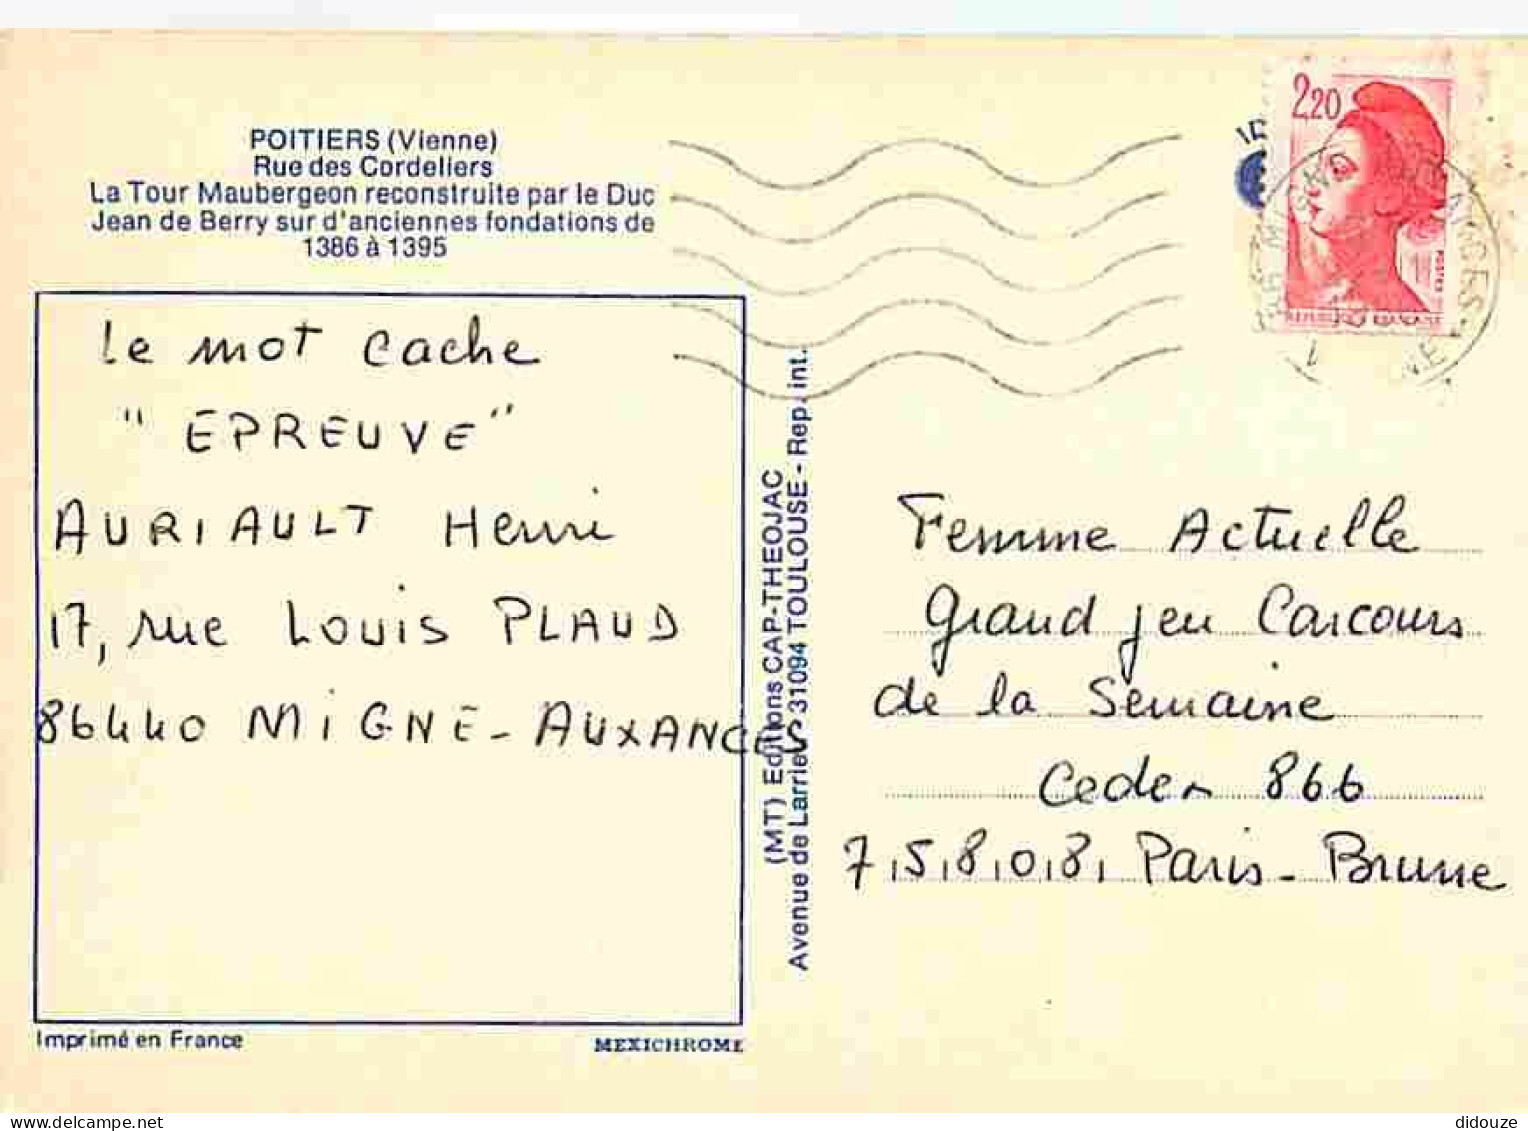 POITIERS (Vienne)
Rue des Cordeliers
La Tour Maubergeon reconstruite par le Duc
Jean de Berry sur d'anciennes fondations de
1386 à 1395
2,20
le mot cache
"EPREUVE"
AURIAULT Henri
17, rue Louis PLAUD
86440 MIGNE-AUXANCES
(MT) Editions CAP-THEOJAC
Avenue de Larrieu - 31094 TOULOUSE - Rep. int.
Femme Actuelle
Grand jeu Concours
de la Semaine
Cedex 866
7,5,8,0,8, Paris-Brune
Imprimé en France
MEXICHROME
delcampe.net
didouze